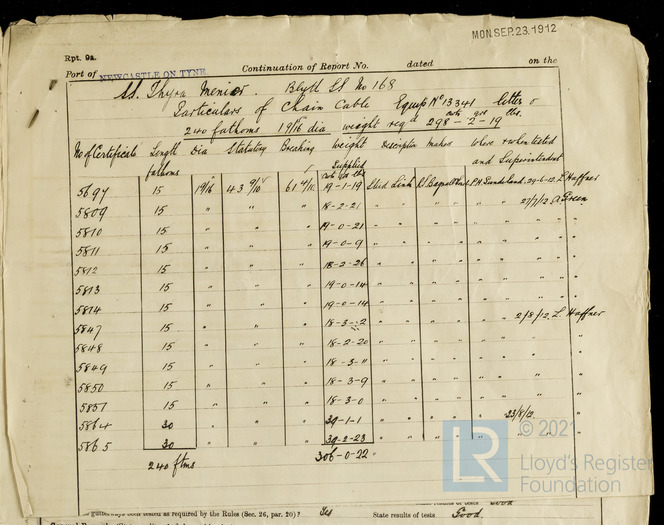 MON.SEP.23.1912
Rpt. 9a.
Port of NEWCASTLE ON TYNE. Continuation of Report No. dated on the
SS. Thyra Menier. Blyth SS No 168
Particulars of Chain Cable Equip No 13341 letter
240 fathoms 1 9/16 dia weight reqd cwts 298 - qrs 2 - lbs. 19
No of Certificate Length fathoms Dia Statutory Breaking Weight Supplied cwt qrs lbs Descriptn Makers Where & when tested and Superintendent
5697 15 1 9/16 43 9/10 61 19-1-19 Stud Link Sunderland. 29-6-12. L. Haffner
5809 15 " " " 18-2-21 " " " " 27/7/12 A. Green
5810 15 " " " 19-0-21 " " " " " "
5811 15 " " " 19-0-9 " " " " " "
5812 15 " " " 18-2-26 " " " " " "
5813 15 " " " 19-0-14 " " " " " "
5814 15 " " " 19-0-14 " " " " " "
5847 15 " " " 18-3-2 " " " " 2/8/12 L. Haffner
5848 15 " " " 18-2-20 " " " " " "
5849 15 " " " 18-3-11 " " " " " "
5850 15 " " " 18-3-9 " " " " " "
5851 15 " " " 18-3-0 " " " " " "
5864 30 " " " 39-1-1 " " " " 23/8/12. "
5865 30 " " " 39-2-23 " " " " " "
240 ftms 306-0-22
© 2021
LR Lloyd's Register
Foundation
been tested as required by the Rules (Sec. 26, par. 20)? Yes State results of tests Good